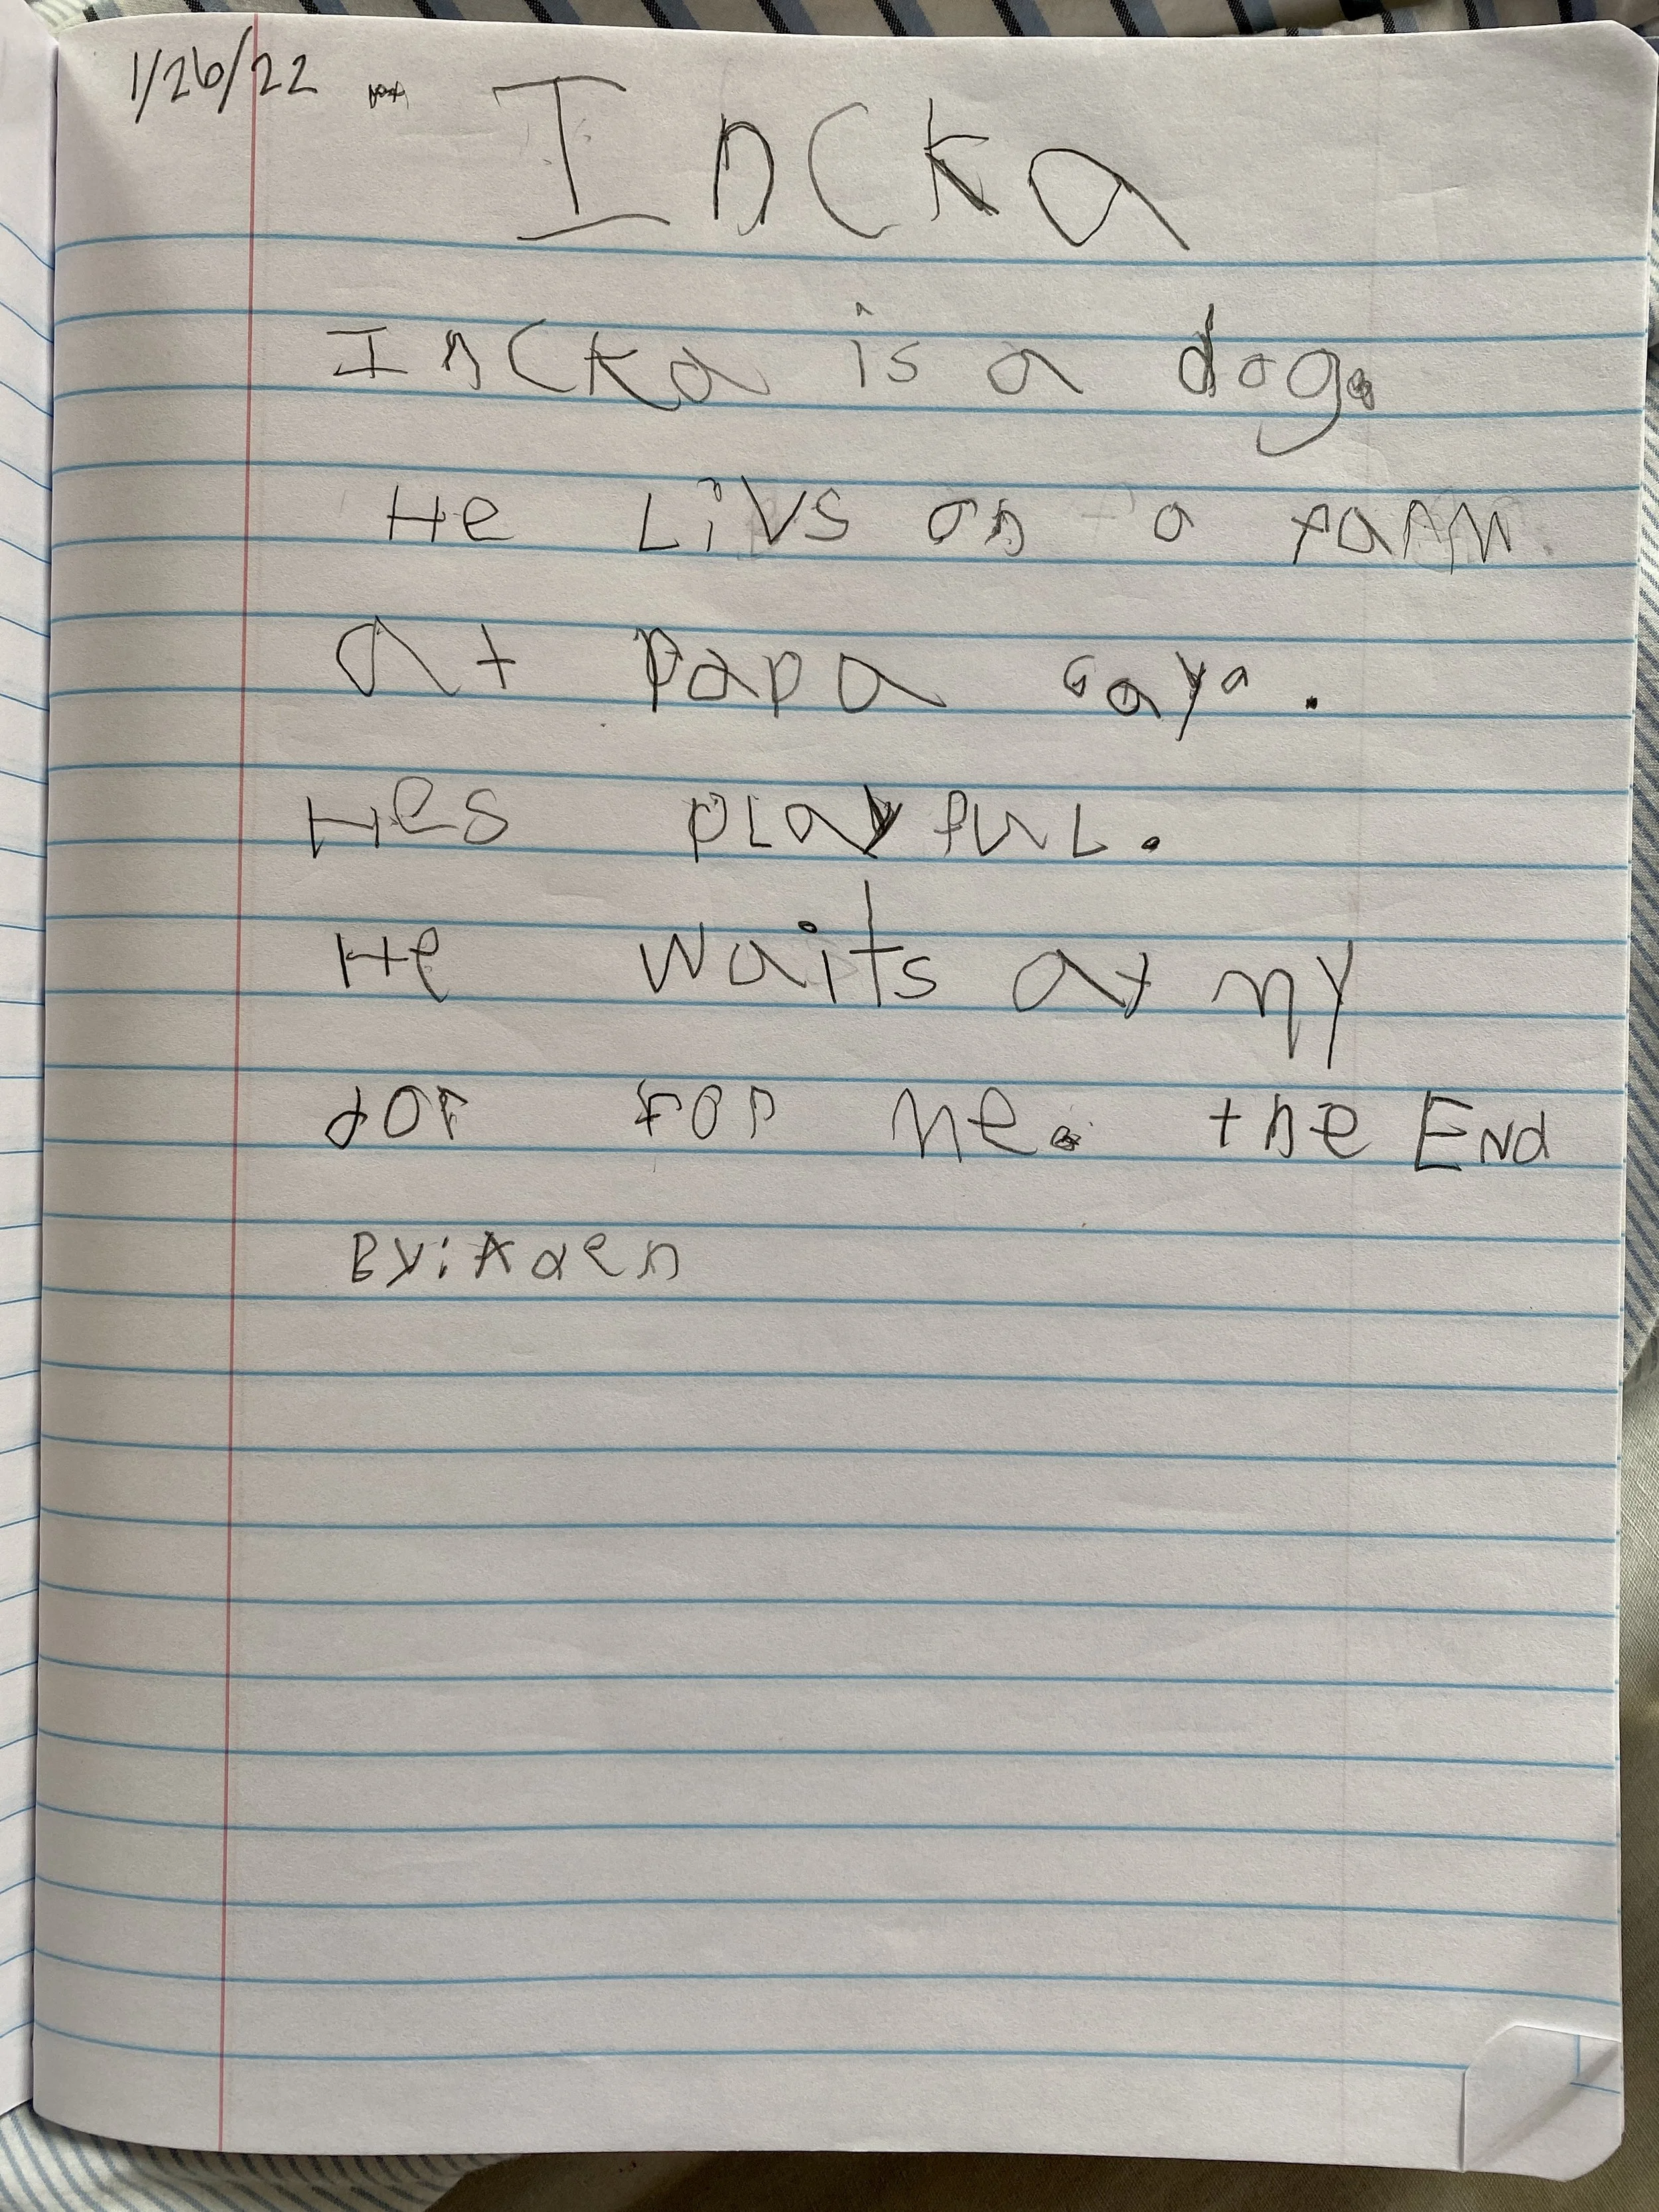 1/26/22 Incka
Incka is a dog.
He Livs on a farm
at papa Gaya.
Hes playful.
He waits at my
dor for me. the End
By: Aden